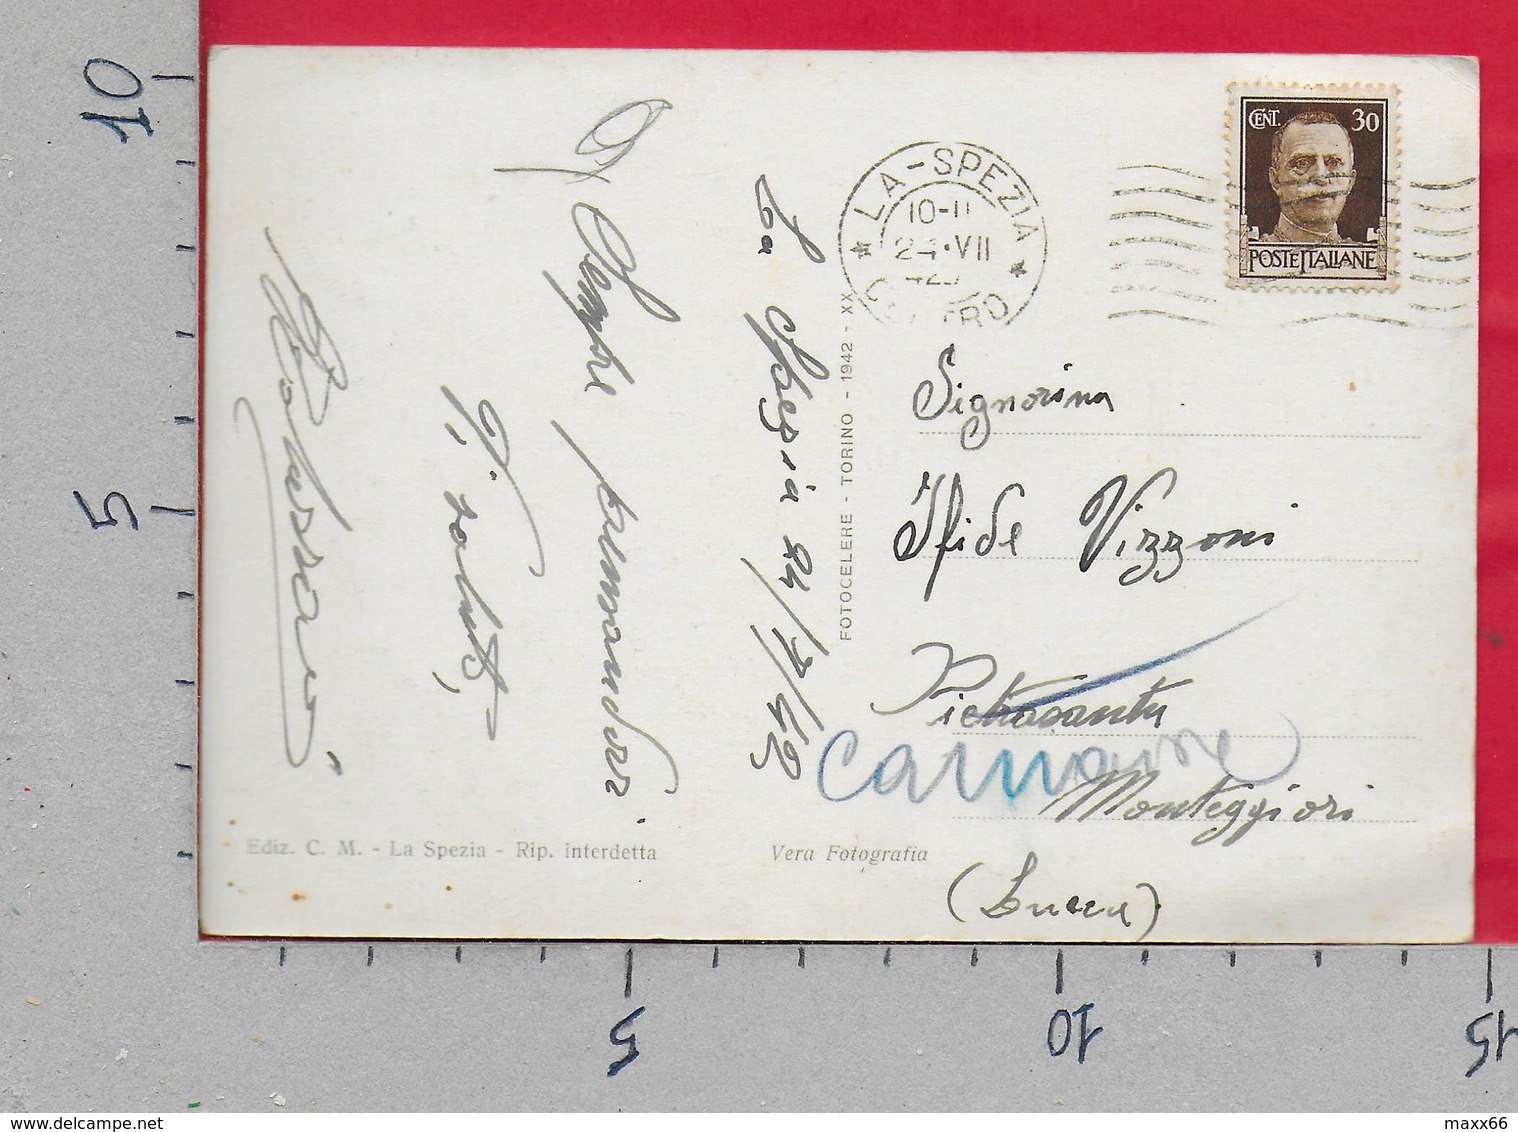 La Spezia 24/7/42
Sempre pensandoti
Ti saluto,
Ediz. C. M. - La Spezia - Rip. interdetta
Vera Fotografia
FOTOCELERE - TORINO - 1942 - XX
LA-SPEZIA
10-11
24·VII
42
CENTRO
CENT. 30
POSTE ITALIANE
Signorina
Ifide Vizzoni
Pietrasanta
Camaiore
Monteggiori
(Lucca)
10
5
5
10
15
maxx66